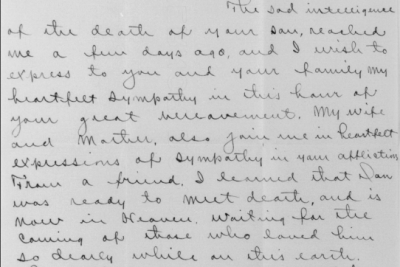 The sad intelligence
of the death of your son, reached
me a few days ago, and I wish to
express to you and your family my
heartfelt sympathy in this hour of
your great bereavement. My wife
and Mother, also join me in heartfelt
expressions of sympathy in your affliction
From a friend, I learned that Dan
was ready to meet death, and is
now in Heaven. waiting for the
coming of those who loved him
so dearly while on this earth.